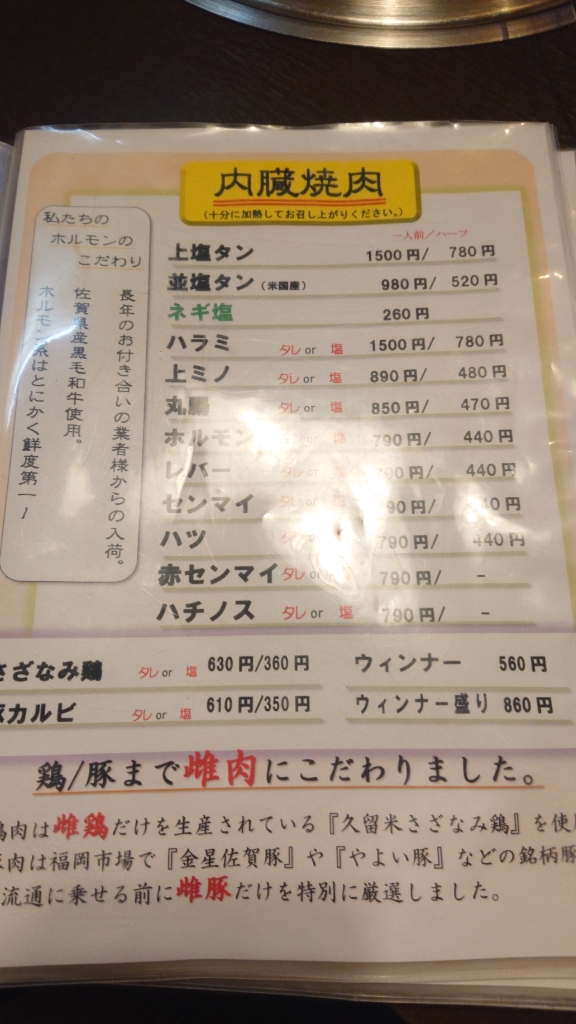 内臓焼肉
(十分に加熱してお召し上がりください。)
私たちの
ホルモンの
こだわり
長年のお付き合いの業者様からの入荷。
佐賀県産黒毛和牛使用。
ホルモン系はとにかく鮮度第一!
一人前/ハーフ
上塩タン 1500円/ 780円
並塩タン(米国産) 980円/ 520円
ネギ塩 260円
ハラミ タレ or 塩 1500円/ 780円
上ミノ タレ or 塩 890円/ 480円
丸腸 タレ or 塩 850円/ 470円
ホルモン 塩 790円/ 440円
レバー 790円/ 440円
センマイ タレ 塩 円
ハツ タレ or 塩 790円/ 440円
赤センマイ タレ or 塩 790円/ -
ハチノス タレ or 塩 790円/ -
さざなみ鶏 タレ or 塩 630円/360円
カルビ タレ or 塩 610円/350円
ウィンナー 560円
ウィンナー盛り 860円
鶏/豚まで雌肉にこだわりました。
鶏肉は雌鶏だけを生産されている『久留米さざなみ鶏』を使
肉は福岡市場で『金星佐賀豚』や『やよい豚』などの銘柄豚
流通に乗せる前に雌豚だけを特別に厳選しました。